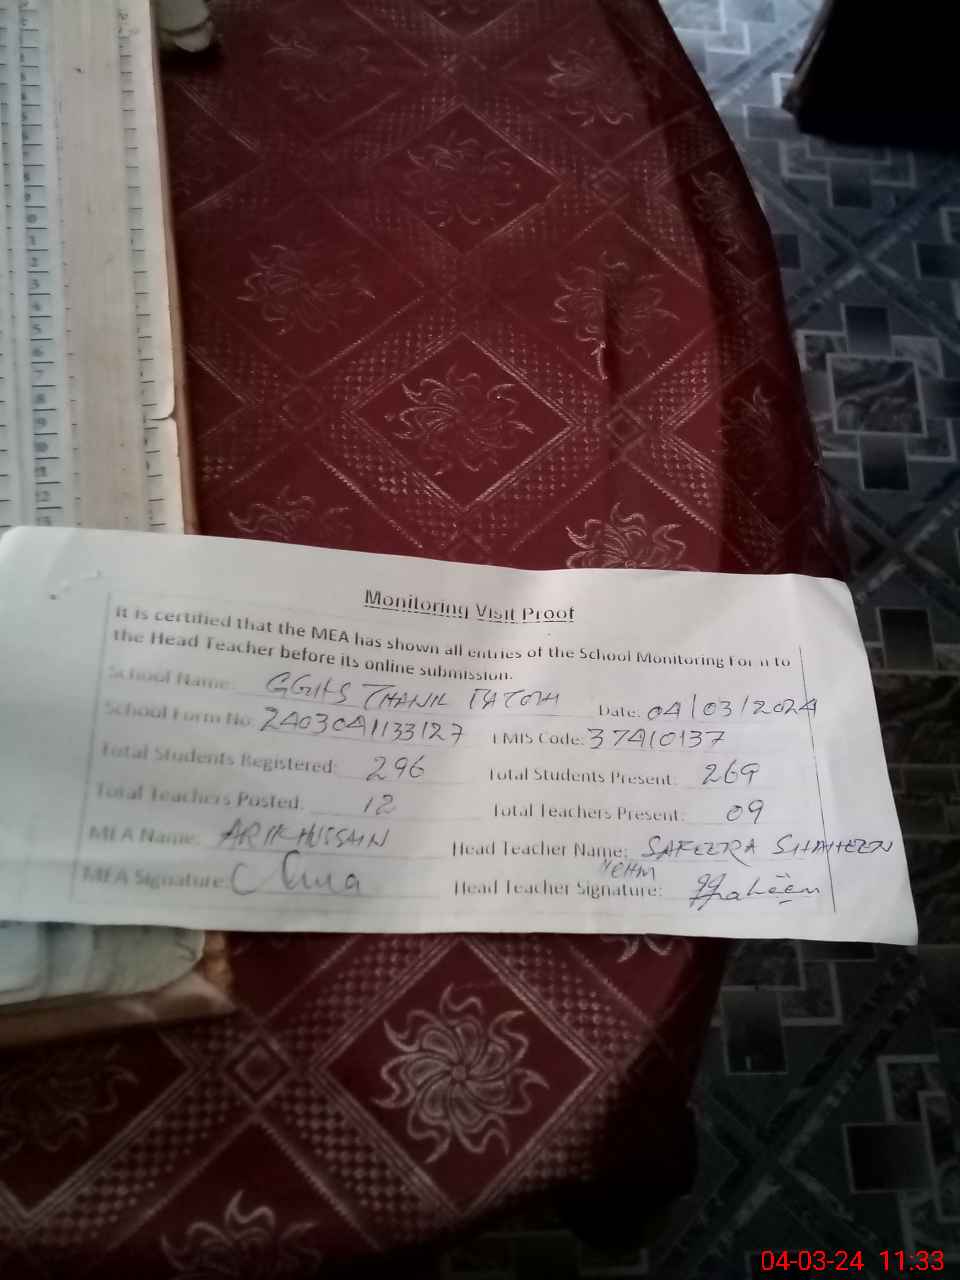 Monitoring Visit Proof
It is certified that the MEA has shown all entries of the School Monitoring Form to
the Head Teacher before its online submission.
School Name: THANIL Date: 04/03/2024
School Form No: 2403041133127 EMIS Code: 37410137
Total Students Registered: 296 Total Students Present: 269
Total Teachers Posted: 12 Total Teachers Present: 09
MEA Name: HUSSAIN Head Teacher Name: SAFEERA SHAHEEN
MEA Signature: Head Teacher Signature: Shaheen
04-03-24 11:33